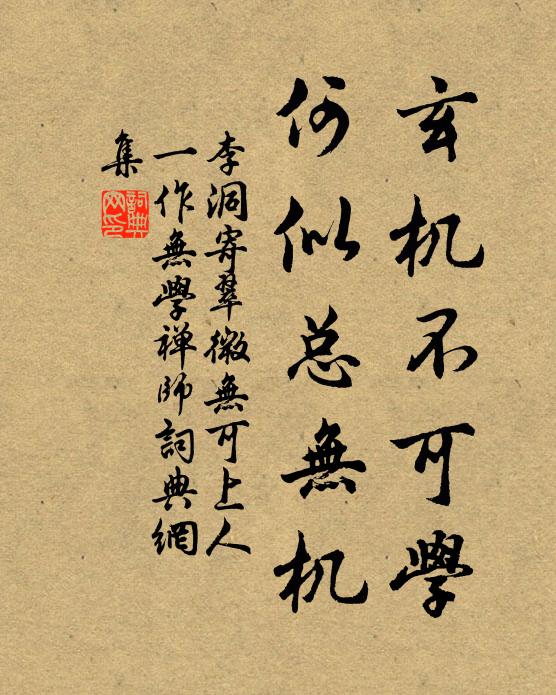 玄机不可學
何似总無机
李洞寄翠微無可上人
一作無學禅師詞典網
集
詞典網印